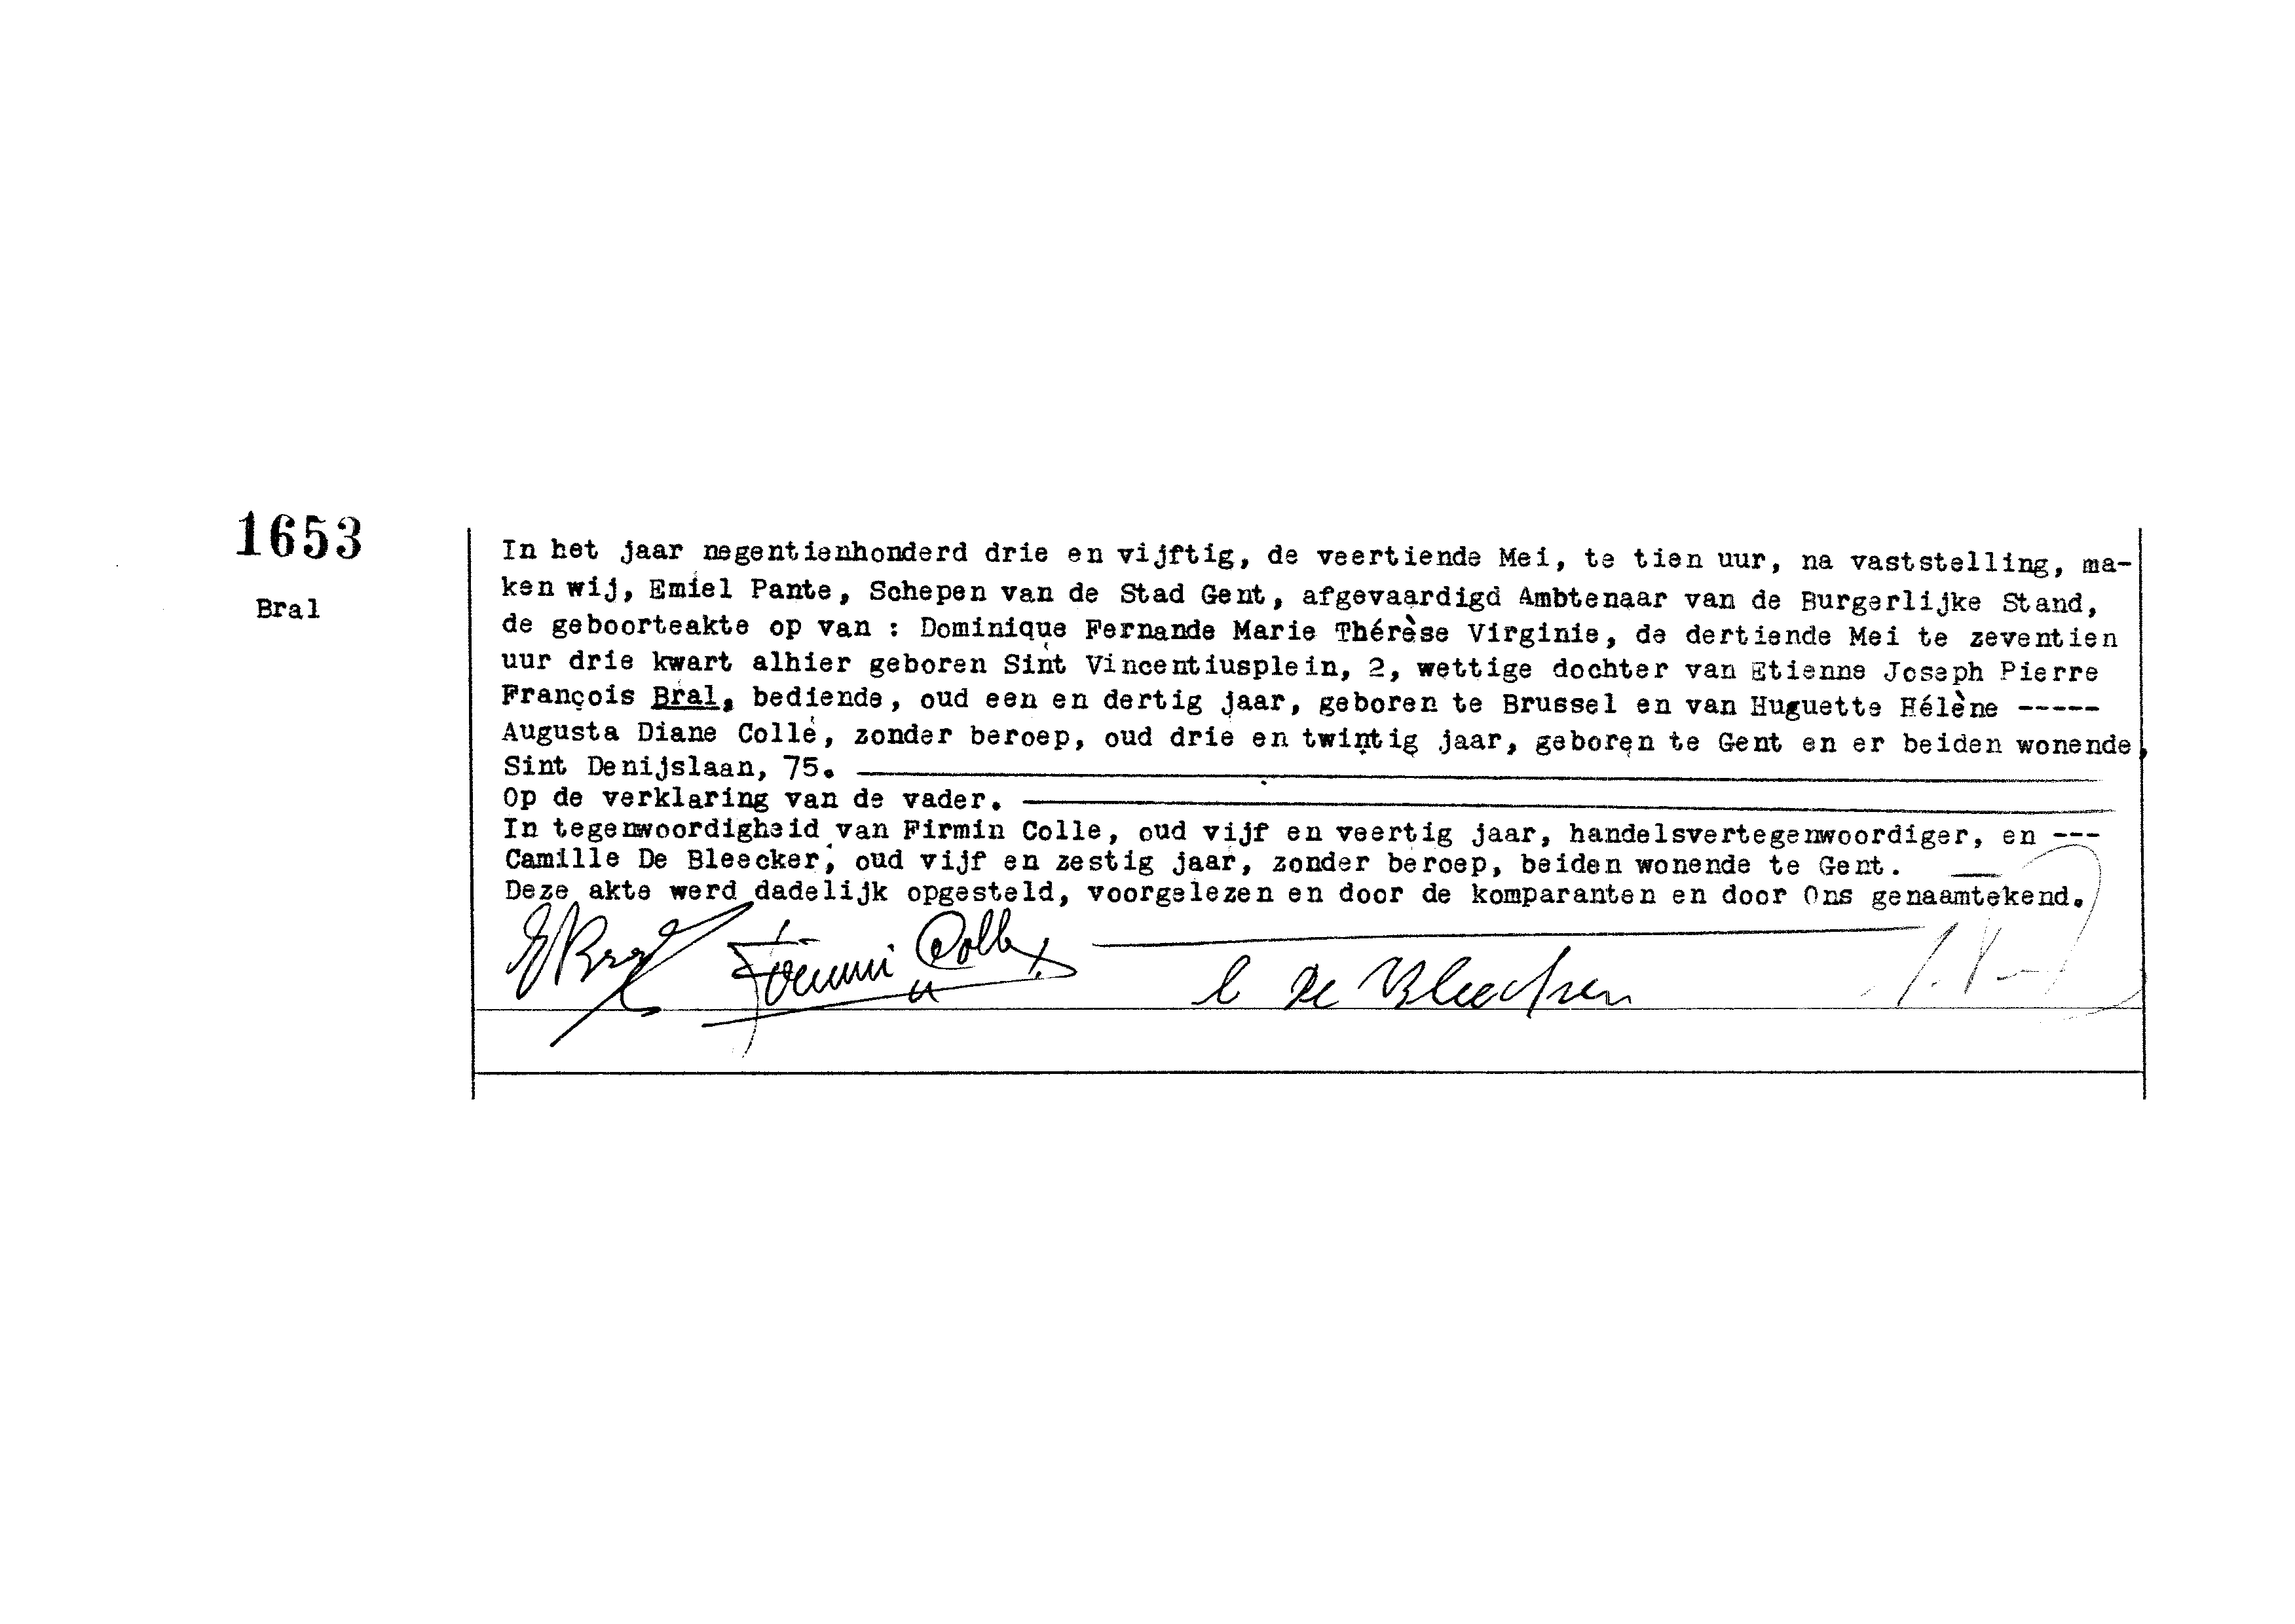 1653
Bral
In het jaar negentienhonderd drie en vijftig, de veertiende Mei, te tien uur, na vaststelling, ma-
ken wij, Emiel Pante, Schepen van de Stad Gent, afgevaardigd Ambtenaar van de Burgerlijke Stand,
de geboorteakte op van : Dominique Fernande Marie Thérèse Virginie, de dertiende Mei te zeventien
uur drie kwart alhier geboren Sint Vincentiusplein, 2, wettige dochter van Etienne Joseph Pierre
François Bral, bediende, oud een en dertig jaar, geboren te Brussel en van Huguette Hélène -----
Augusta Diane Colle, zonder beroep, oud drie en twintig jaar, geboren te Gent en er beiden wonende,
Sint Denijslaan, 75.
Op de verklaring van de vader.
In tegenwoordigheid van Firmin Colle, oud vijf en veertig jaar, handelsvertegenwoordiger, en ---
Camille De Bleecker, oud vijf en zestig jaar, zonder beroep, beiden wonende te Gent.
Deze akte werd dadelijk opgesteld, voorgelezen en door de komparanten en door Ons genaamtekend.
EBral Firmin Colle C De Bleecker